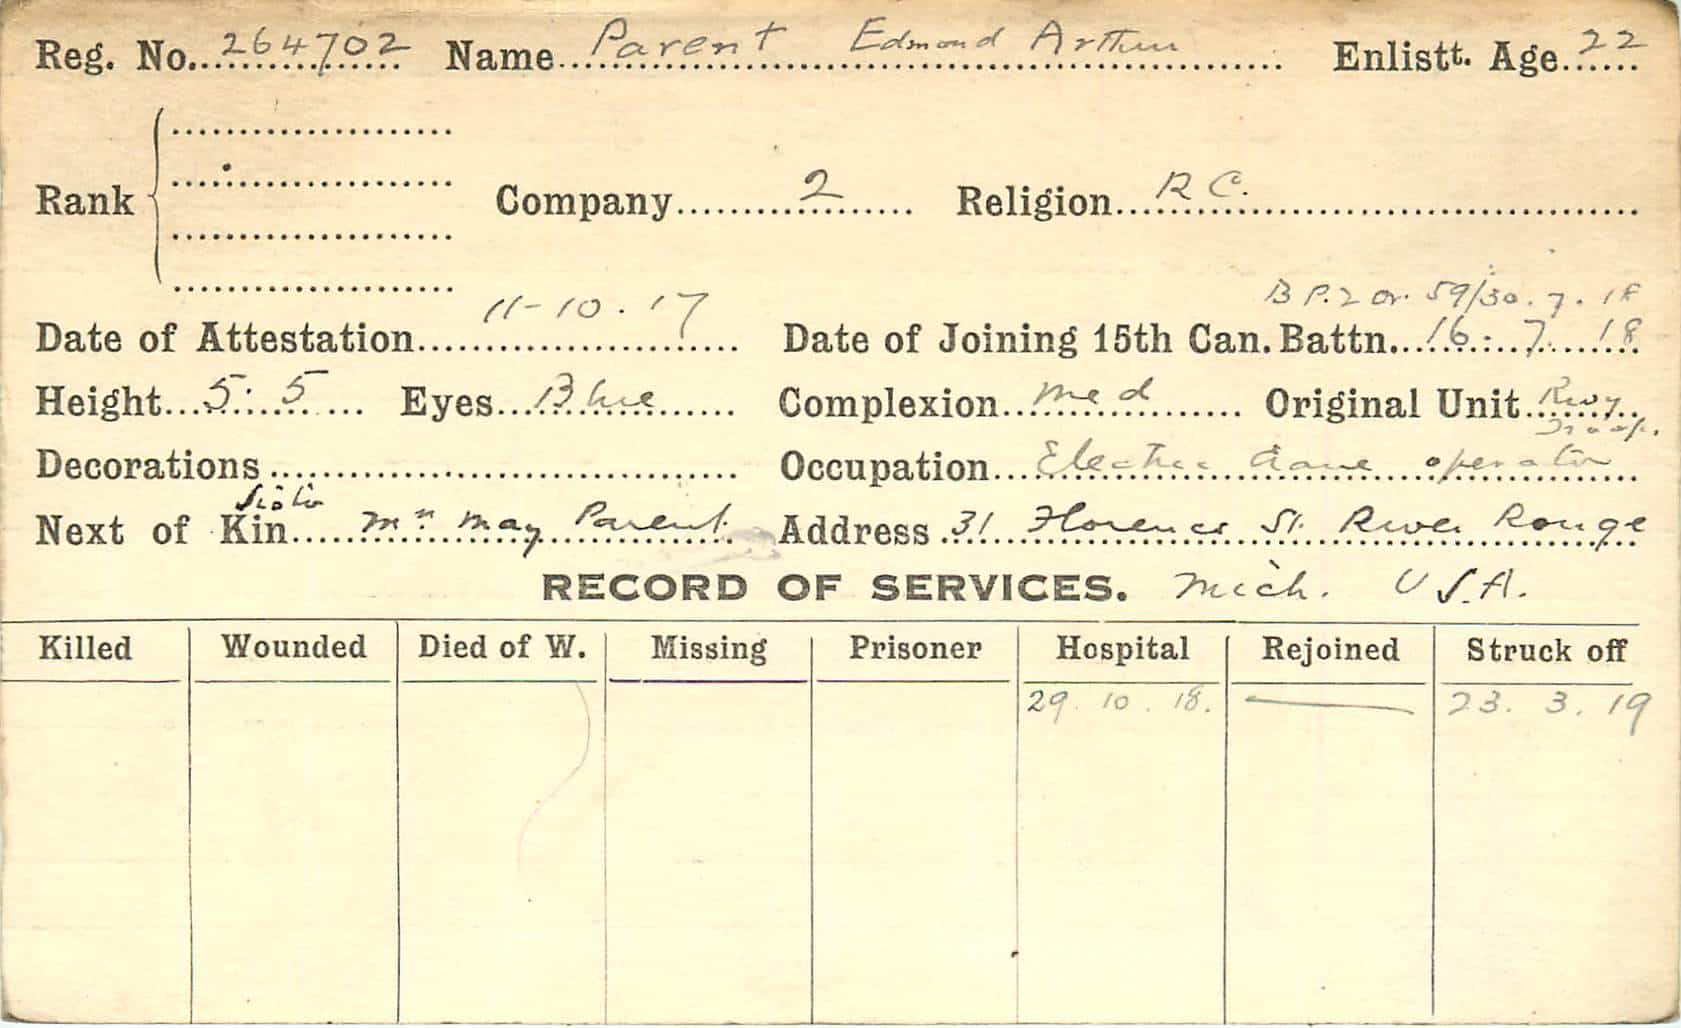 Reg. No. 264702 Name Parent Edmond Arthur Enlistt. Age 22
Rank Company 2 Religion R C.
B P. 2 Or. 59/30. 7. 18
Date of Attestation 11-10.17 Date of Joining 15th Can. Battn. 16. 7. 18
Height 5' 5 Eyes Blue Complexion Med Original Unit Rwy
Troops.
Decorations Occupation Electric Crane operator
Sister
Next of Kin Mrs May Parent Address 31 Florence St. River Rouge
RECORD OF SERVICES. Mich. U.S.A.
Killed Wounded Died of W. Missing Prisoner Hospital Rejoined Struck off
29. 10. 18. — 23. 3. 19